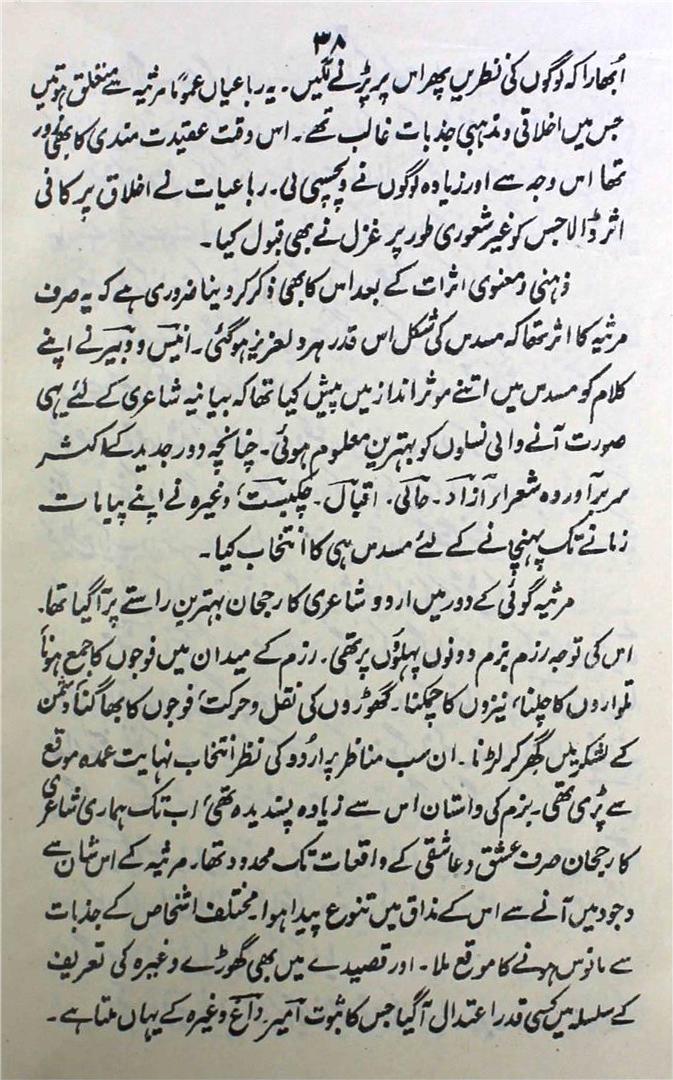 ۳۸
ابھارا کہ لوگوں کی نظریں پھر اس پر پڑنے لگیں۔ یہ رباعیاں عموماً مرثیہ سے متعلق ہوتیں
جس میں اخلاقی و مذہبی جذبات غالب تھے۔ اس وقت عقیدت مندی کا بھی زور
تھا اس وجہ سے اور زیادہ لوگوں نے دلچسپی لی۔ رباعیات نے اخلاق پر کافی
اثر ڈالا جس کو غیر شعوری طور پر غزل نے بھی قبول کیا۔
ذہنی و معنوی اثرات کے بعد اس کا بھی ذکر کر دینا ضروری ہے کہ یہ صرف
مرثیہ کا اثر تھا کہ مسدس کی شکل اس قدر ہر دلعزیز ہو گئی۔ انیس و دبیر نے اپنے
کلام کو مسدس میں اتنے موثر انداز میں پیش کیا تھا کہ بیانیہ شاعری کے لئے یہی
صورت آنے والی نسلوں کو بہترین معلوم ہوئی۔ چنانچہ دور جدید کے اکثر
سربرآوردہ شعرا، آزاد۔ حالی۔ اقبال۔ چکبست، وغیرہ نے اپنے پیامات
زمانے تک پہنچانے کے لئے مسدس ہی کا انتخاب کیا۔
مرثیہ گوئی کے دور میں اردو شاعری کا رجحان بہترین راستے پر آ گیا تھا۔
اس کی توجہ رزم بزم دونوں پہلوؤں پر تھی۔ رزم کے میدان میں فوجوں کا جمع ہونا،
تلواروں کا چلنا، نیزوں کا چمکنا۔ گھوڑوں کی نقل و حرکت، فوجوں کا بھاگنا، دشمن
کے لشکر میں گھر کر لڑنا۔ ان سب مناظر پر اردو کی نظر انتخاب نہایت عمدہ موقع
سے پڑی تھی۔ بزم کی داستان اس سے زیادہ پسندیدہ تھی، اب تک ہماری شاعری
کا رجحان صرف عشق و عاشقی کے واقعات تک محدود تھا۔ مرثیہ کے اس شان سے
وجود میں آنے سے اس کے مذاق میں تنوع پیدا ہوا۔ مختلف اشخاص کے جذبات
سے مانوس ہونے کا موقع ملا۔ اور قصیدے میں بھی گھوڑے وغیرہ کی تعریف
کے سلسلہ میں کسی قدر اعتدال آ گیا جس کا ثبوت امیر، داغ وغیرہ کے یہاں ملتا ہے۔